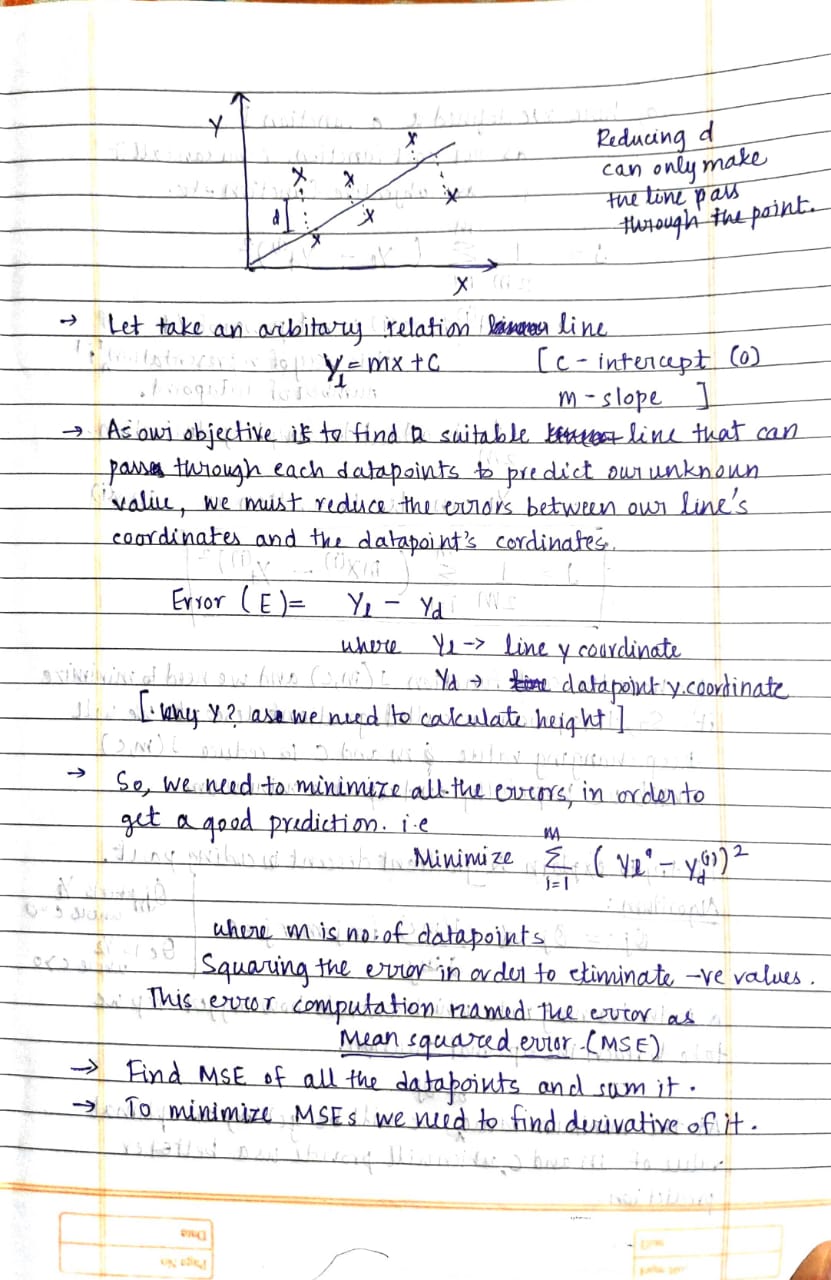 Y
Reducing d
can only make
the line pass
through the point.
d
X
→ Let take an arbitary relation line
Yl = mx + C [C - intercept (0)
m - slope ]
→ As our objective is to find a suitable line that can
pass through each datapoints to predict our unknoun
value, we must reduce the errors between our line's
coordinates and the datapoint's cordinates.
Error (E) = Yl - Yd
where Yl -> line y coordinate
Yd → datapoint y.coordinate
[. Why Y? as we need to calculate height]
→ So, we need to minimize all the errors, in order to
get a good prediction. i.e
Minimize M Σ i=1 (Yl - yd^(i))^2
where m is no. of datapoints
Squaring the error in order to eliminate -ve values.
This error computation named the error as
Mean squared error (MSE)
→ Find MSE of all the datapoints and sum it.
→ To minimize MSEs we need to find derivative of it.